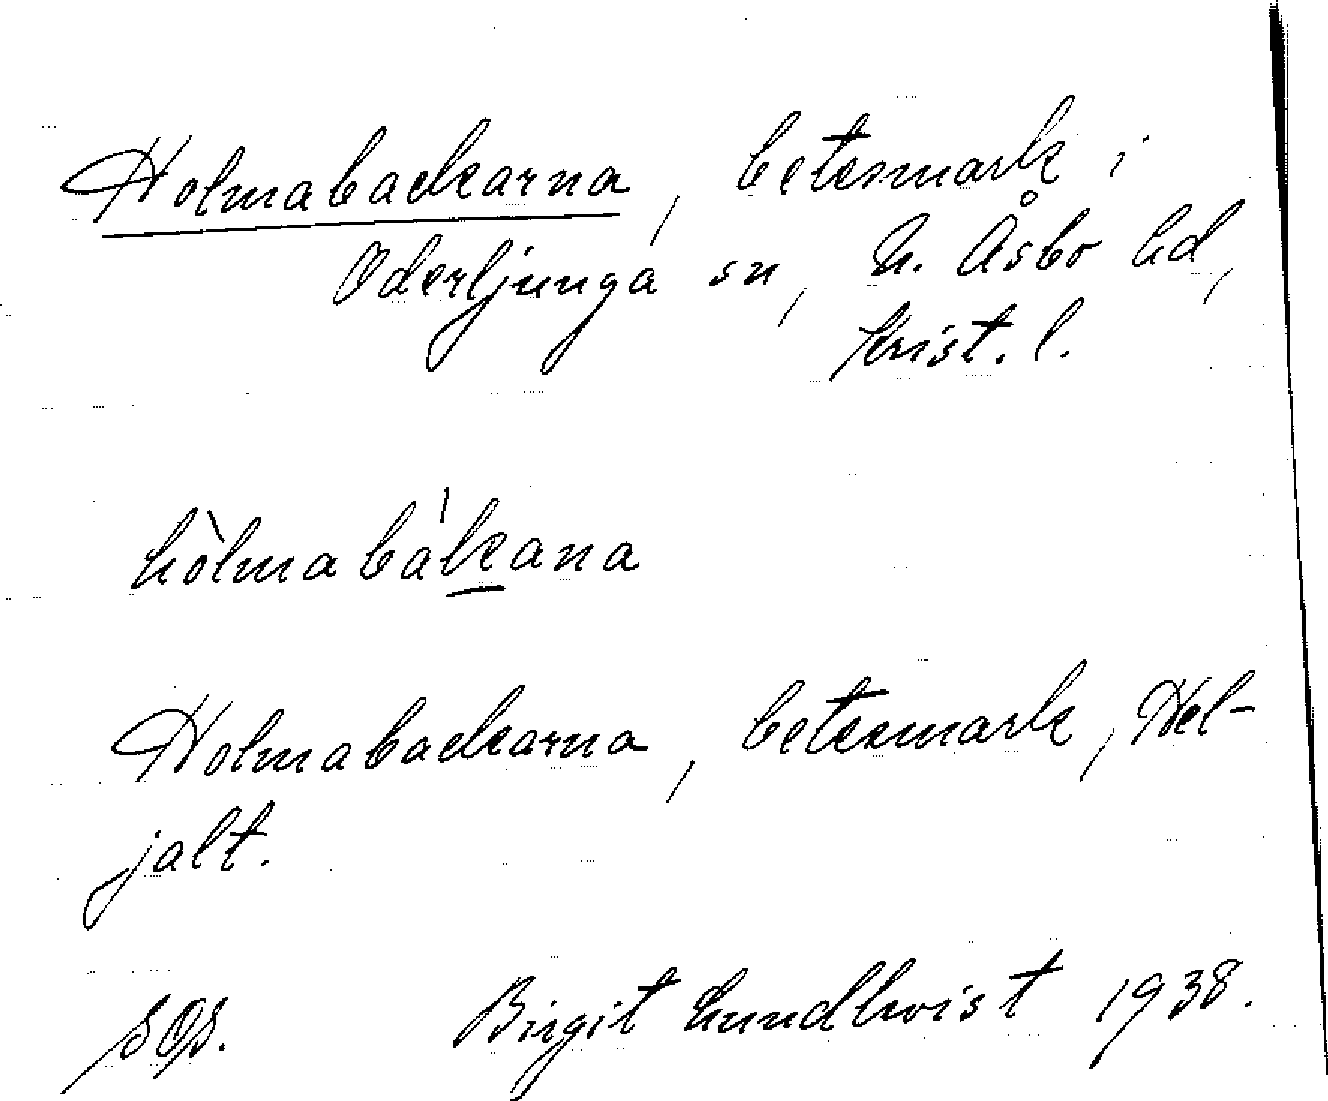 Holmabackarna, betesmark i
Oderljunga sn, N. Åsbo hd,
Krist. l.
hòlmabákana
Holmabackarna, betesmark, Hel-
jalt.
Birgit Lundkvist 1938.